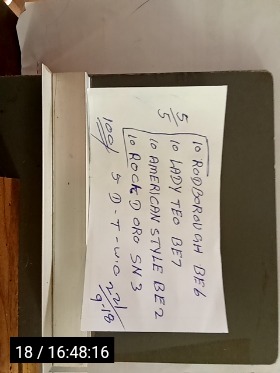 10 RODBOROUGH BE6
10 LADY TEO BE7
10 AMERICAN STYLE BE2
10 ROCK D ORO SN3
5/5
100/ 5 D - T - W.O
18 / 16:48:16